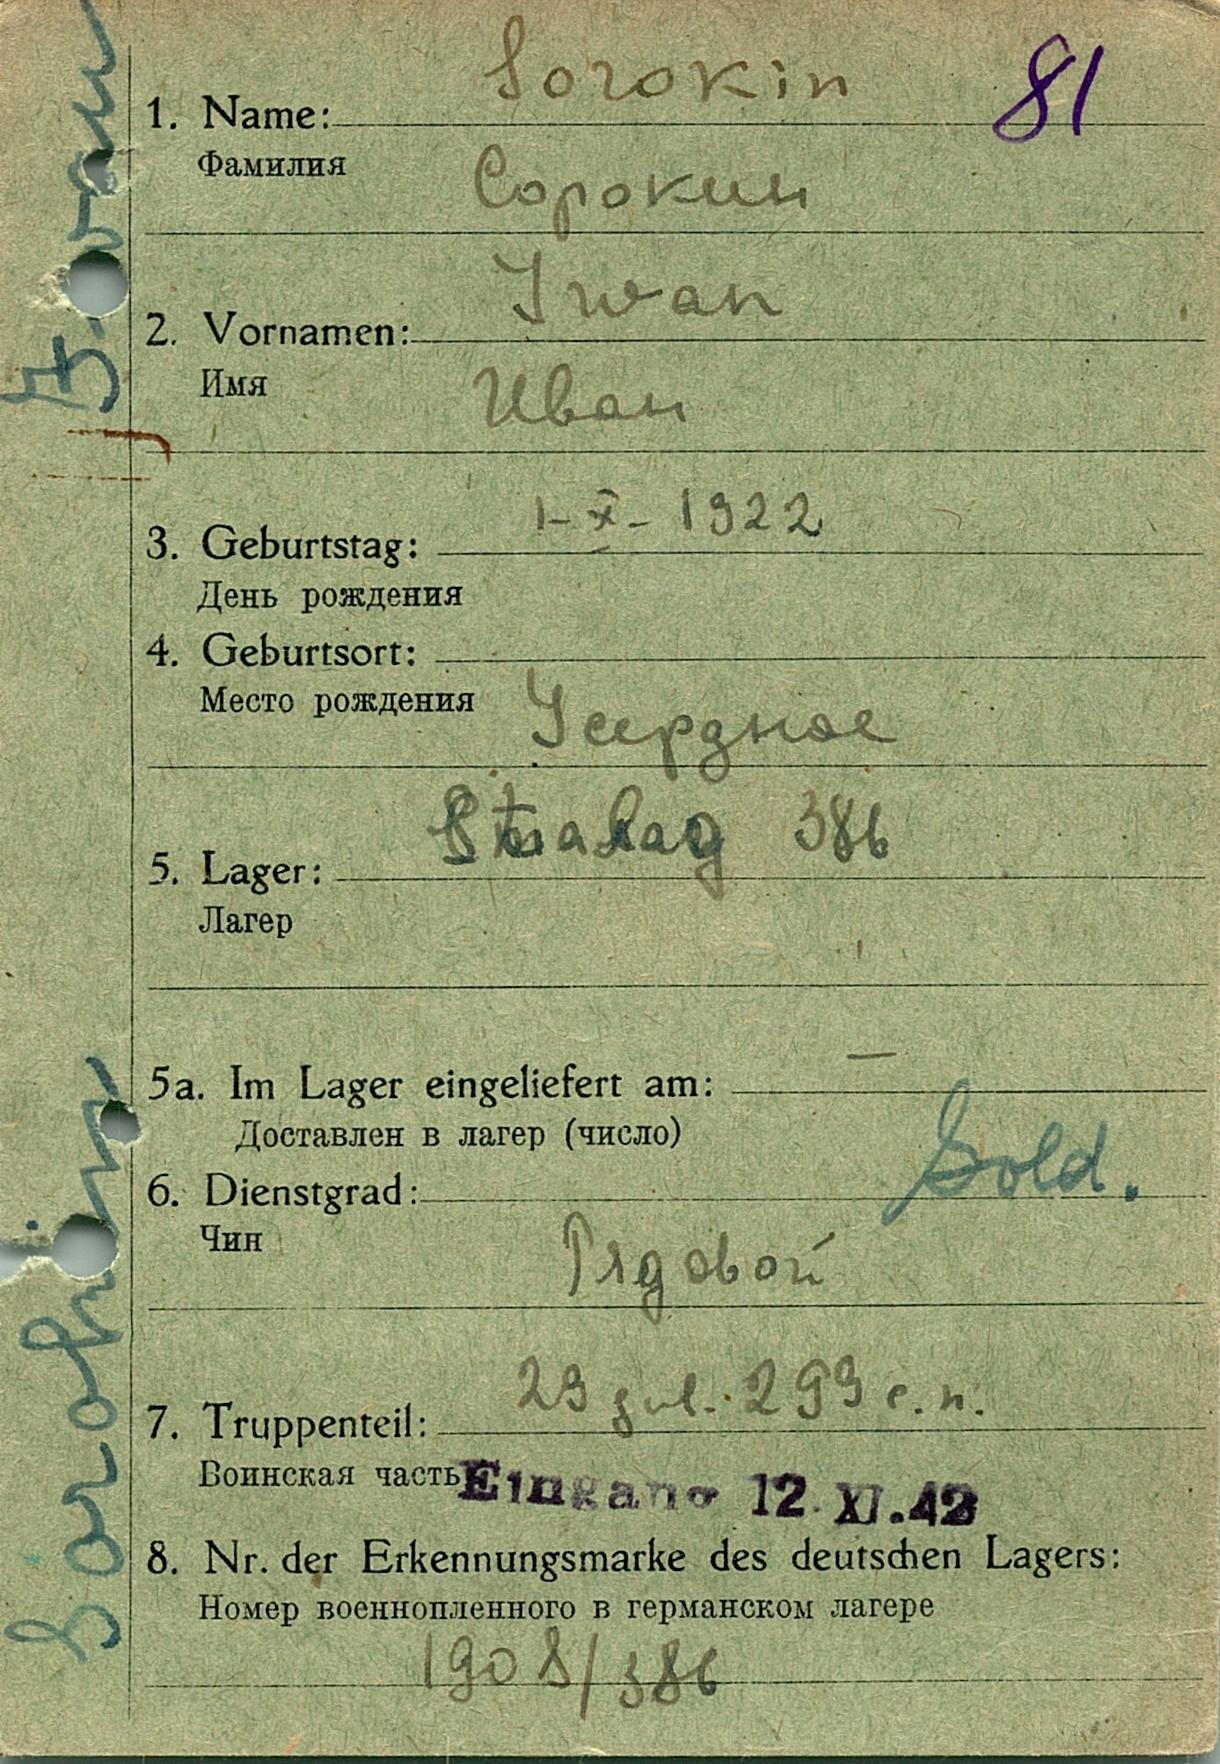 Sorokin
81
1. Name:
Фамилия
Сорокин
Iwan
2. Vornamen:
Имя
Иван
1-X-1922
3. Geburtstag:
День рождения
4. Geburtsort:
Место рождения
Усердное
Stalag 386
5. Lager:
Лагер
5a. Im Lager eingeliefert am: —
Доставлен в лагер (число)
6. Dienstgrad: Sold.
Чин
Рядовой
23 див. 293 с.п.
7. Truppenteil:
Воинская часть
Eingang 12. XI. 42
8. Nr. der Erkennungsmarke des deutschen Lagers:
Номер военнопленного в германском лагере
1908/386
Sorokin Iwan